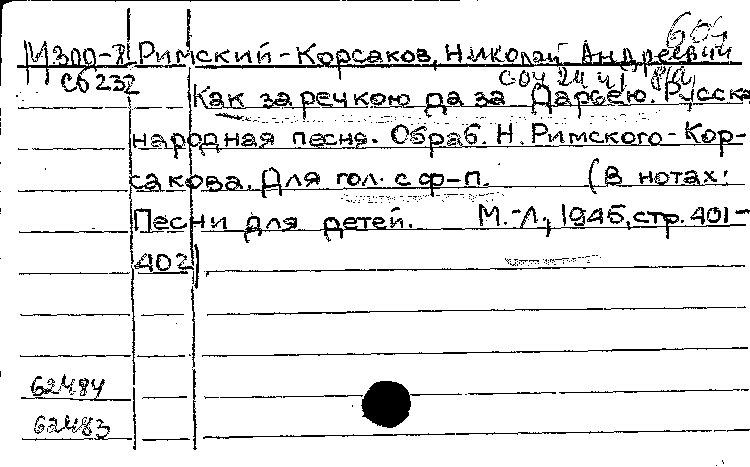 604
М300-8 Римский-Корсаков, Николай Андреевич
Сб 232 соч 24 ч1
Как за речкою да за Дарьею. Русска
народная песня. Обраб. Н. Римского-Кор-
сакова. Для гол. с ф-п. (В нотах:
Песни для детей. М.-Л., 1945, стр. 401-
402).
62484
62483